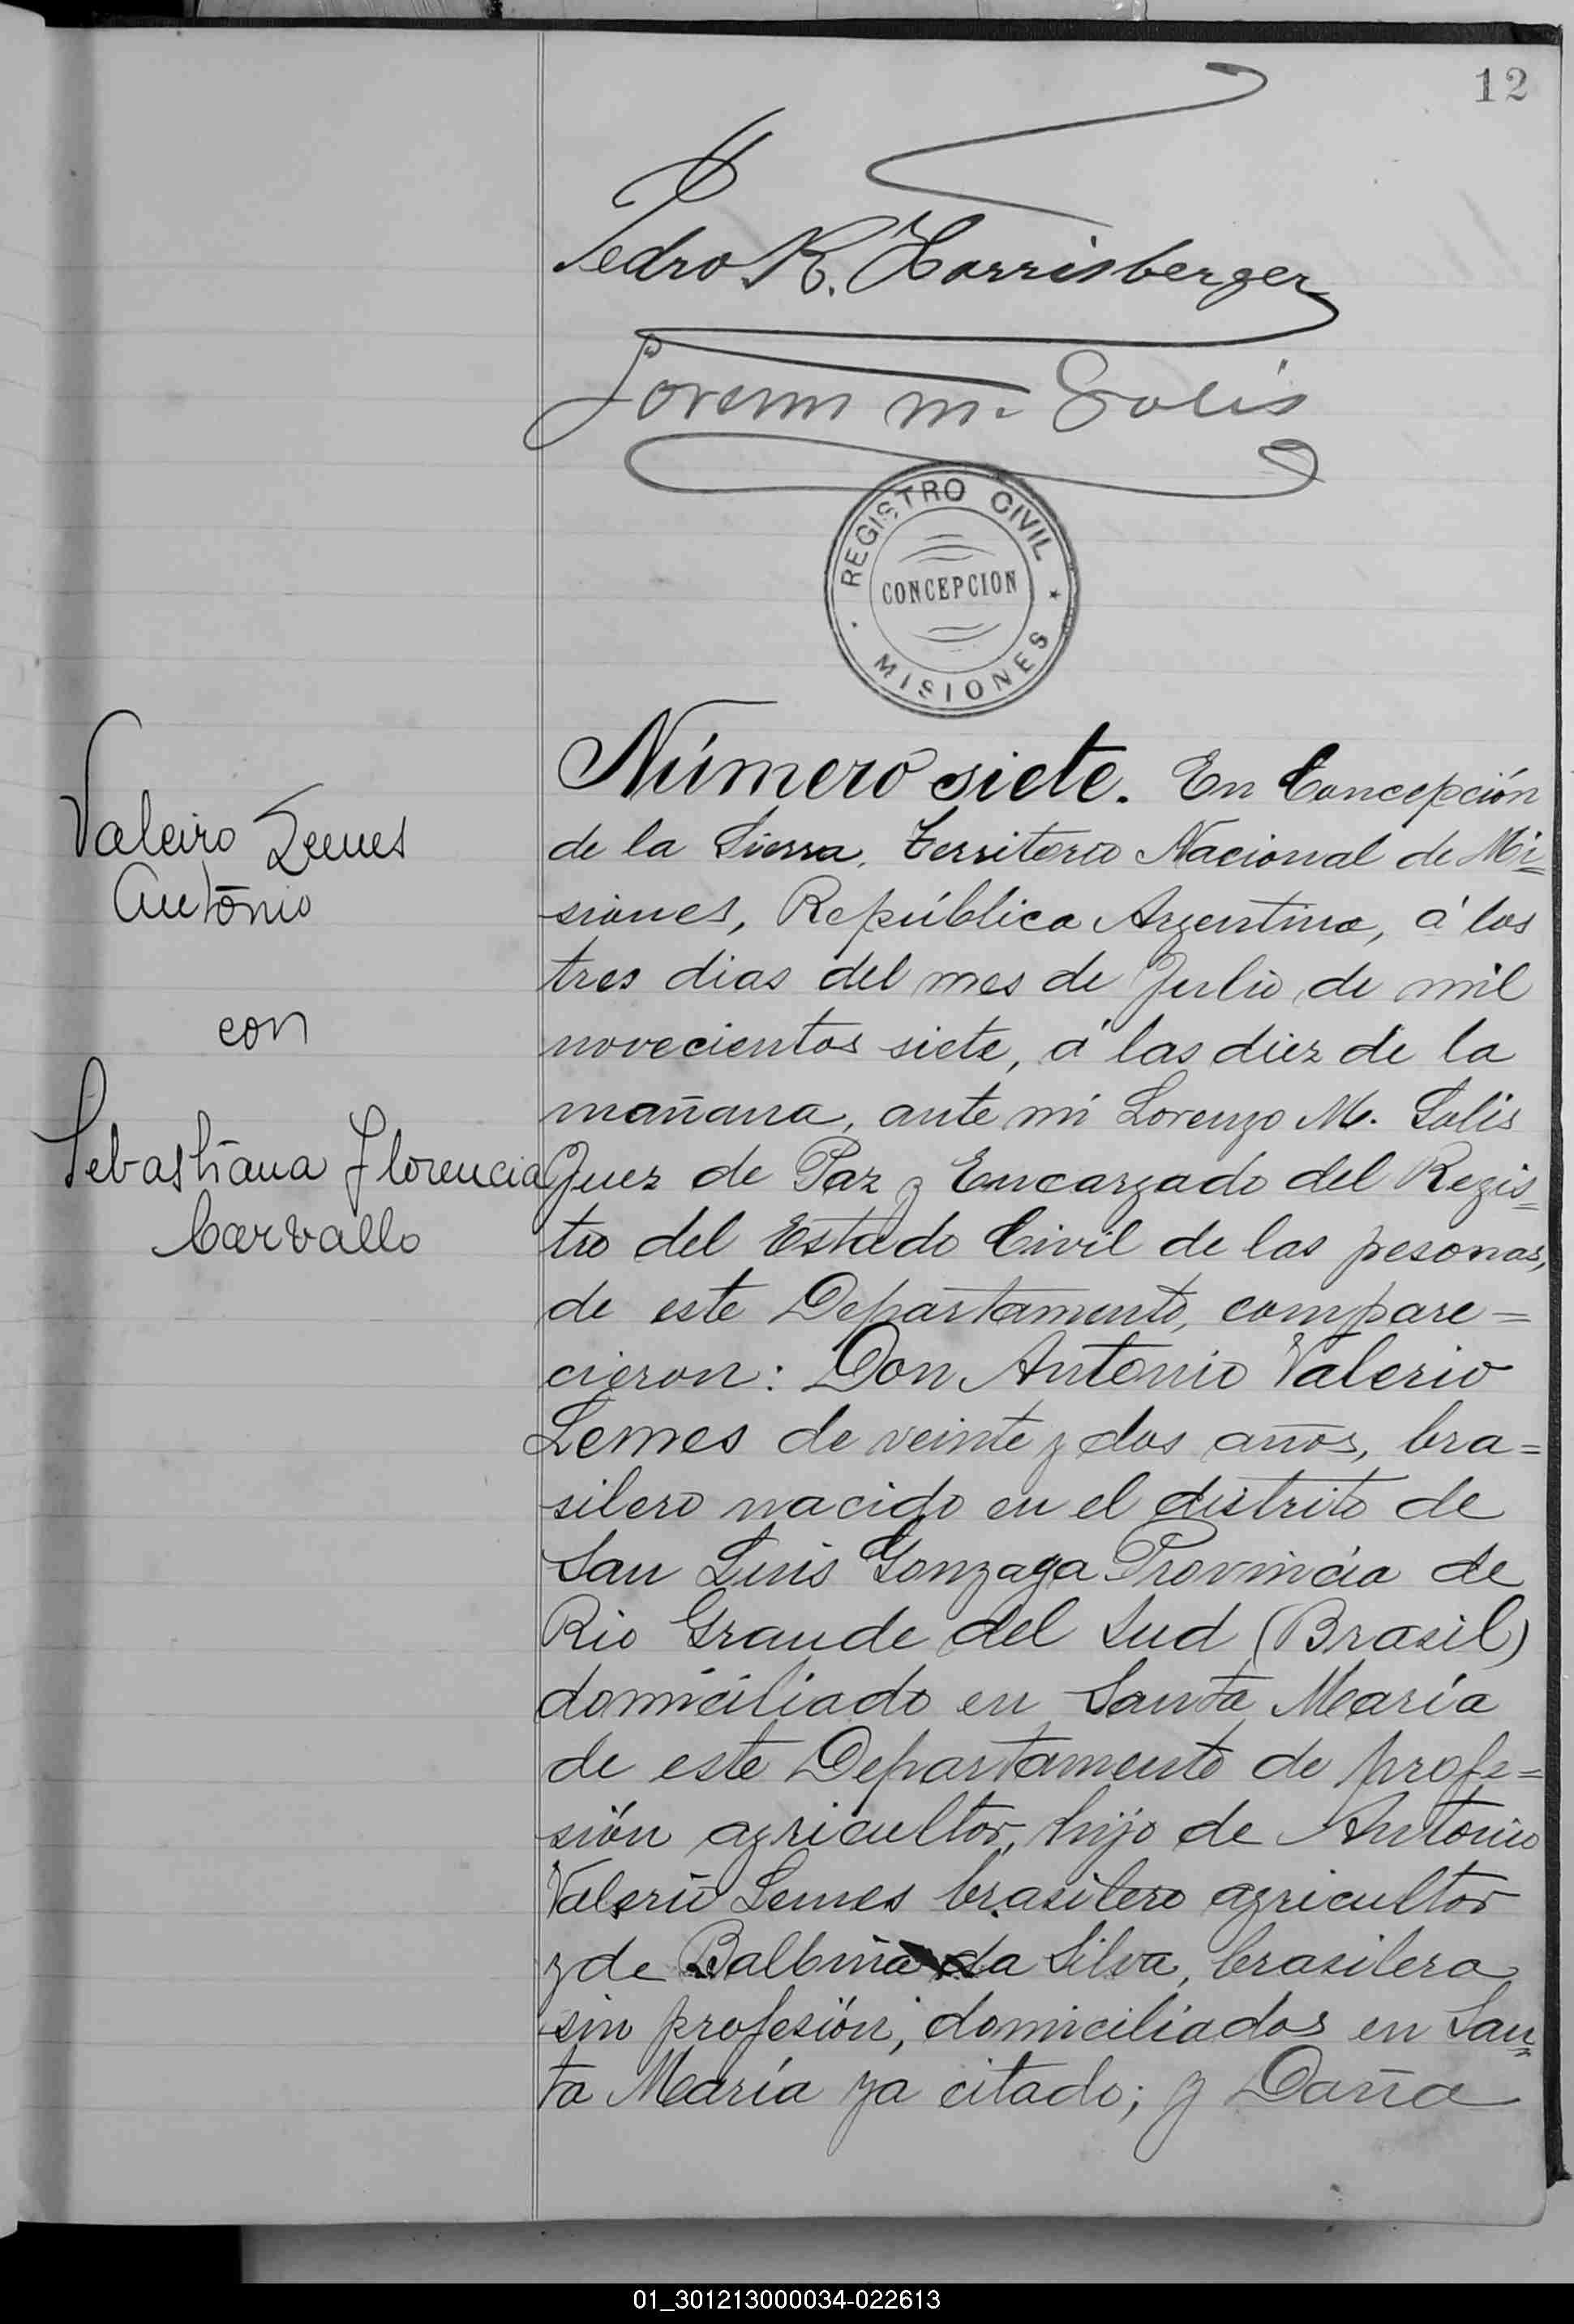 12
Pedro R. Harrisberger
Lorenzo M. Solis
REGISTRO CIVIL
CONCEPCION
MISIONES
Valeiro Lemes
Antonio
con
Sebastiana Florencia
Carvallo
Número siete. En Concepción
de la Sierra, Territorio Nacional de Mi=
siones, República Argentina, á los
tres dias del mes de Julio de mil
novecientos siete, á las diez de la
mañana, ante mi Lorenzo M. Solis
Juez de Paz y Encargado del Regis=
tro del Estado Civil de las pesonas,
de este Departamento, compare=
cieron: Don Antonio Valerio
Lemes de veinte y dos años, bra=
silero nacido en el distrito de
San Luis Gonzaga Provincia de
Rio Grande del Sud (Brasil)
domiciliado en Santa María
de este Departamento de profe=
sión agricultor, hijo de Antonio
Valerio Lemes brasilero agricultor
y de Balbina da Silva, brasilera
sin profesión, domiciliados en San=
ta María ya citado; y Doña
01_301213000034-022613